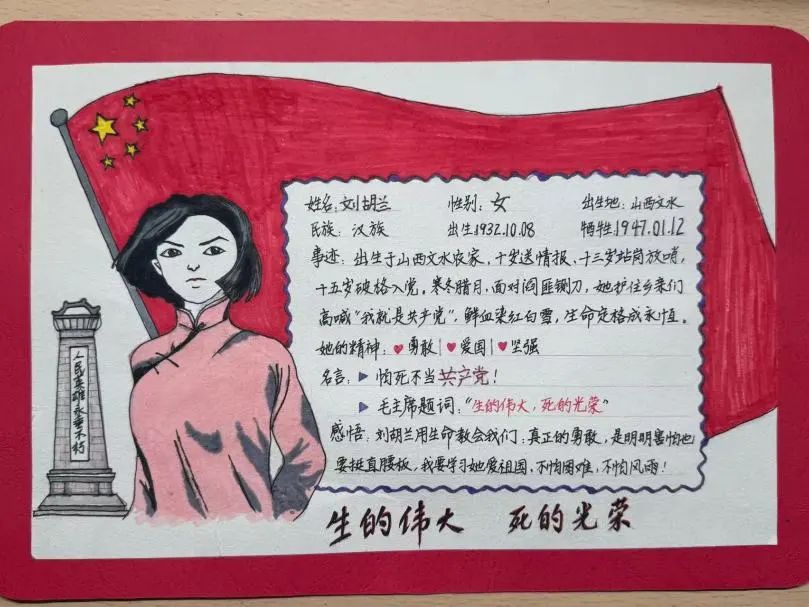 姓名:刘胡兰 性别:女 出生地:山西文水
民族:汉族 出生1932.10.08 牺牲1947.01.12
事迹:出生于山西文水农家,十岁送情报,十三岁站岗放哨,
十五岁破格入党。寒冬腊月,面对阎匪铡刀,她护住乡亲们
高喊“我就是共产党”,鲜血染红白雪,生命定格成永恒。
她的精神:♥勇敢|♥爱国|♥坚强
名言:▶怕死不当共产党!
▶毛主席题词:“生的伟大,死的光荣”
感悟:刘胡兰用生命教会我们:真正的勇敢,是明明害怕也
要挺直腰板,我要学习她爱祖国,不怕困难,不怕风雨!
人民英雄永垂不朽
生的伟大 死的光荣